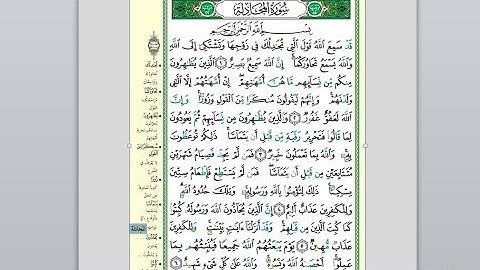 سُورَةُ المُجَادلَةِ
بِسْمِ اللَّهِ الرَّحْمَٰنِ الرَّحِيمِ
قَدْ سَمِعَ اللَّهُ قَوْلَ الَّتِي تُجَادِلُكَ فِي زَوْجِهَا وَتَشْتَكِي إِلَى اللَّهِ
وَاللَّهُ يَسْمَعُ تَحَاوُرَكُمَا إِنَّ اللَّهَ سَمِيعٌ بَصِيرٌ ١ الَّذِينَ يُظَاهِرُونَ
مِنكُم مِّن نِّسَائِهِم مَّا هُنَّ أُمَّهَاتِهِمْ إِنْ أُمَّهَاتُهُمْ إِلَّا الَّٰئِي
وَلَدْنَهُمْ وَإِنَّهُمْ لَيَقُولُونَ مُنكَرًا مِّنَ الْقَوْلِ وَزُورًا وَإِنَّ
اللَّهَ لَعَفُوٌّ غَفُورٌ ٢ وَالَّذِينَ يُظَاهِرُونَ مِن نِّسَائِهِمْ ثُمَّ يَعُودُونَ
لِمَا قَالُوا فَتَحْرِيرُ رَقَبَةٍ مِّن قَبْلِ أَن يَتَمَاسَّا ذَٰلِكُمْ تُوعَظُونَ
بِهِ وَاللَّهُ بِمَا تَعْمَلُونَ خَبِيرٌ ٣ فَمَن لَّمْ يَجِدْ فَصِيَامُ شَهْرَيْنِ
مُتَتَابِعَيْنِ مِن قَبْلِ أَن يَتَمَاسَّا فَمَن لَّمْ يَسْتَطِعْ فَإِطْعَامُ سِتِّينَ
مِسْكِينًا ذَٰلِكَ لِتُؤْمِنُوا بِاللَّهِ وَرَسُولِهِ وَتِلْكَ حُدُودُ اللَّهِ
وَلِلْكَافِرِينَ عَذَابٌ أَلِيمٌ ٤ إِنَّ الَّذِينَ يُحَادُّونَ اللَّهَ وَرَسُولَهُ كُبِتُوا
كَمَا كُبِتَ الَّذِينَ مِن قَبْلِهِمْ وَقَدْ أَنزَلْنَا آيَاتٍ بَيِّنَاتٍ وَلِلْكَافِرِينَ
عَذَابٌ مُّهِينٌ ٥ يَوْمَ يَبْعَثُهُمُ اللَّهُ جَمِيعًا فَيُنَبِّئُهُم بِمَا
عَمِلُوا أَحْصَاهُ اللَّهُ وَنَسُوهُ وَاللَّهُ عَلَىٰ كُلِّ شَيْءٍ شَهِيدٌ ٦
المجادلة